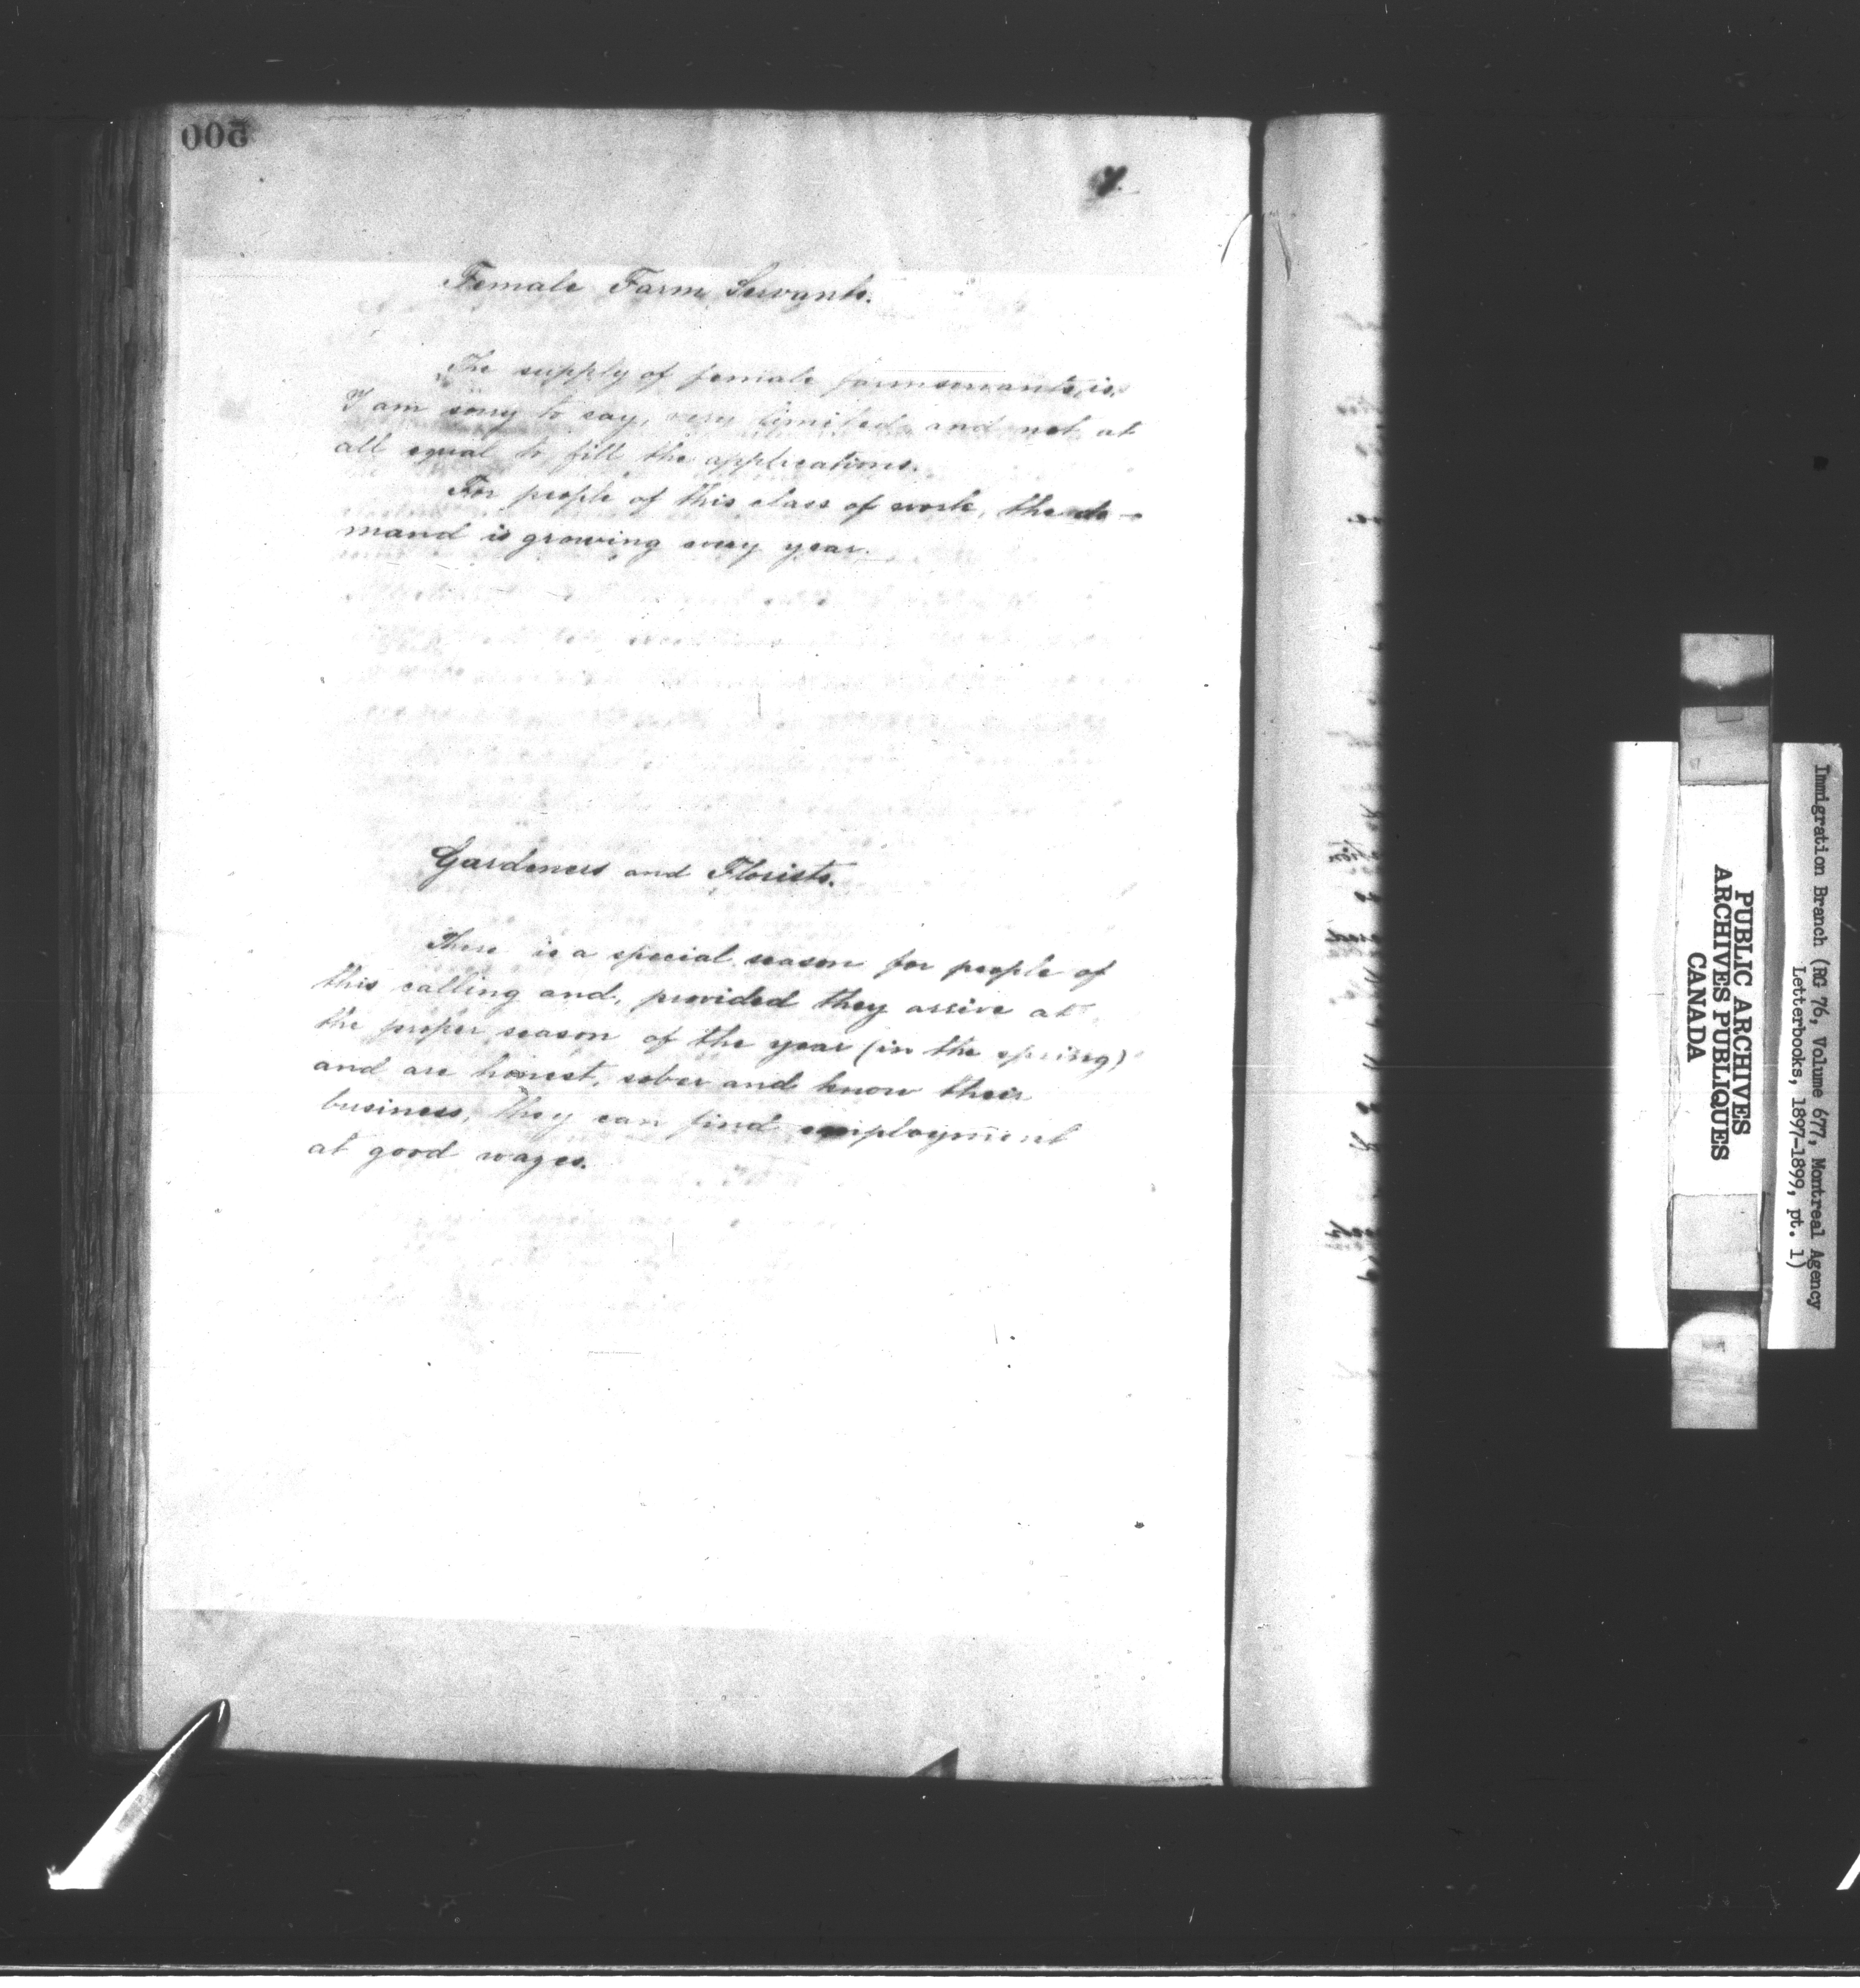 500
Female Farm Servants.
The supply of female farmservants, is,
I am sorry to say, very limited and not at
all equal to fill the applications.
For people of this class of work, the de-
mand is growing every year.
Gardeners and Florists.
There is a special season for people of
this calling and, provided they arrive at
the proper season of the year (in the spring)
and are honest, sober and know their
business, they can find employment
at good wages.
PUBLIC ARCHIVES
ARCHIVES PUBLIQUES
CANADA
Immigration Branch (RG 76, Volume 677, Montreal Agency
Letterbooks, 1897-1899, pt. 1)